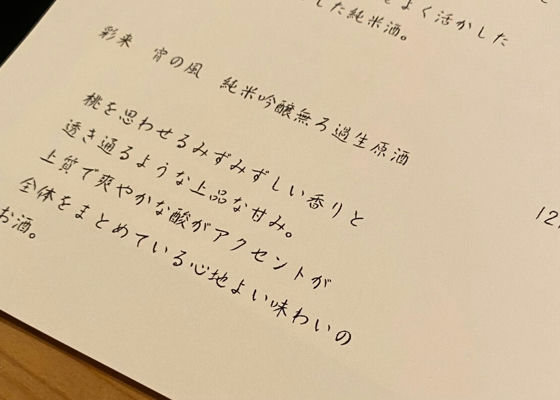 よく活かした
した純米酒。
彩来 宵の風 純米吟醸無ろ過生原酒
桃を思わせるみずみずしい香りと
透き通るような上品な甘み。
上質で爽やかな酸がアクセントが
全体をまとめている心地よい味わいの
お酒。